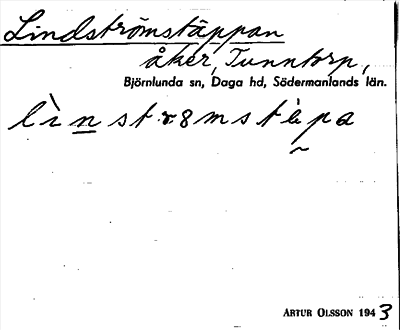 Lindströmstäppan
åker, Tunntorp,
Björnlunda sn, Daga hd, Södermanlands län.
lìnstr8mstàpa
ARTUR OLSSON 1943